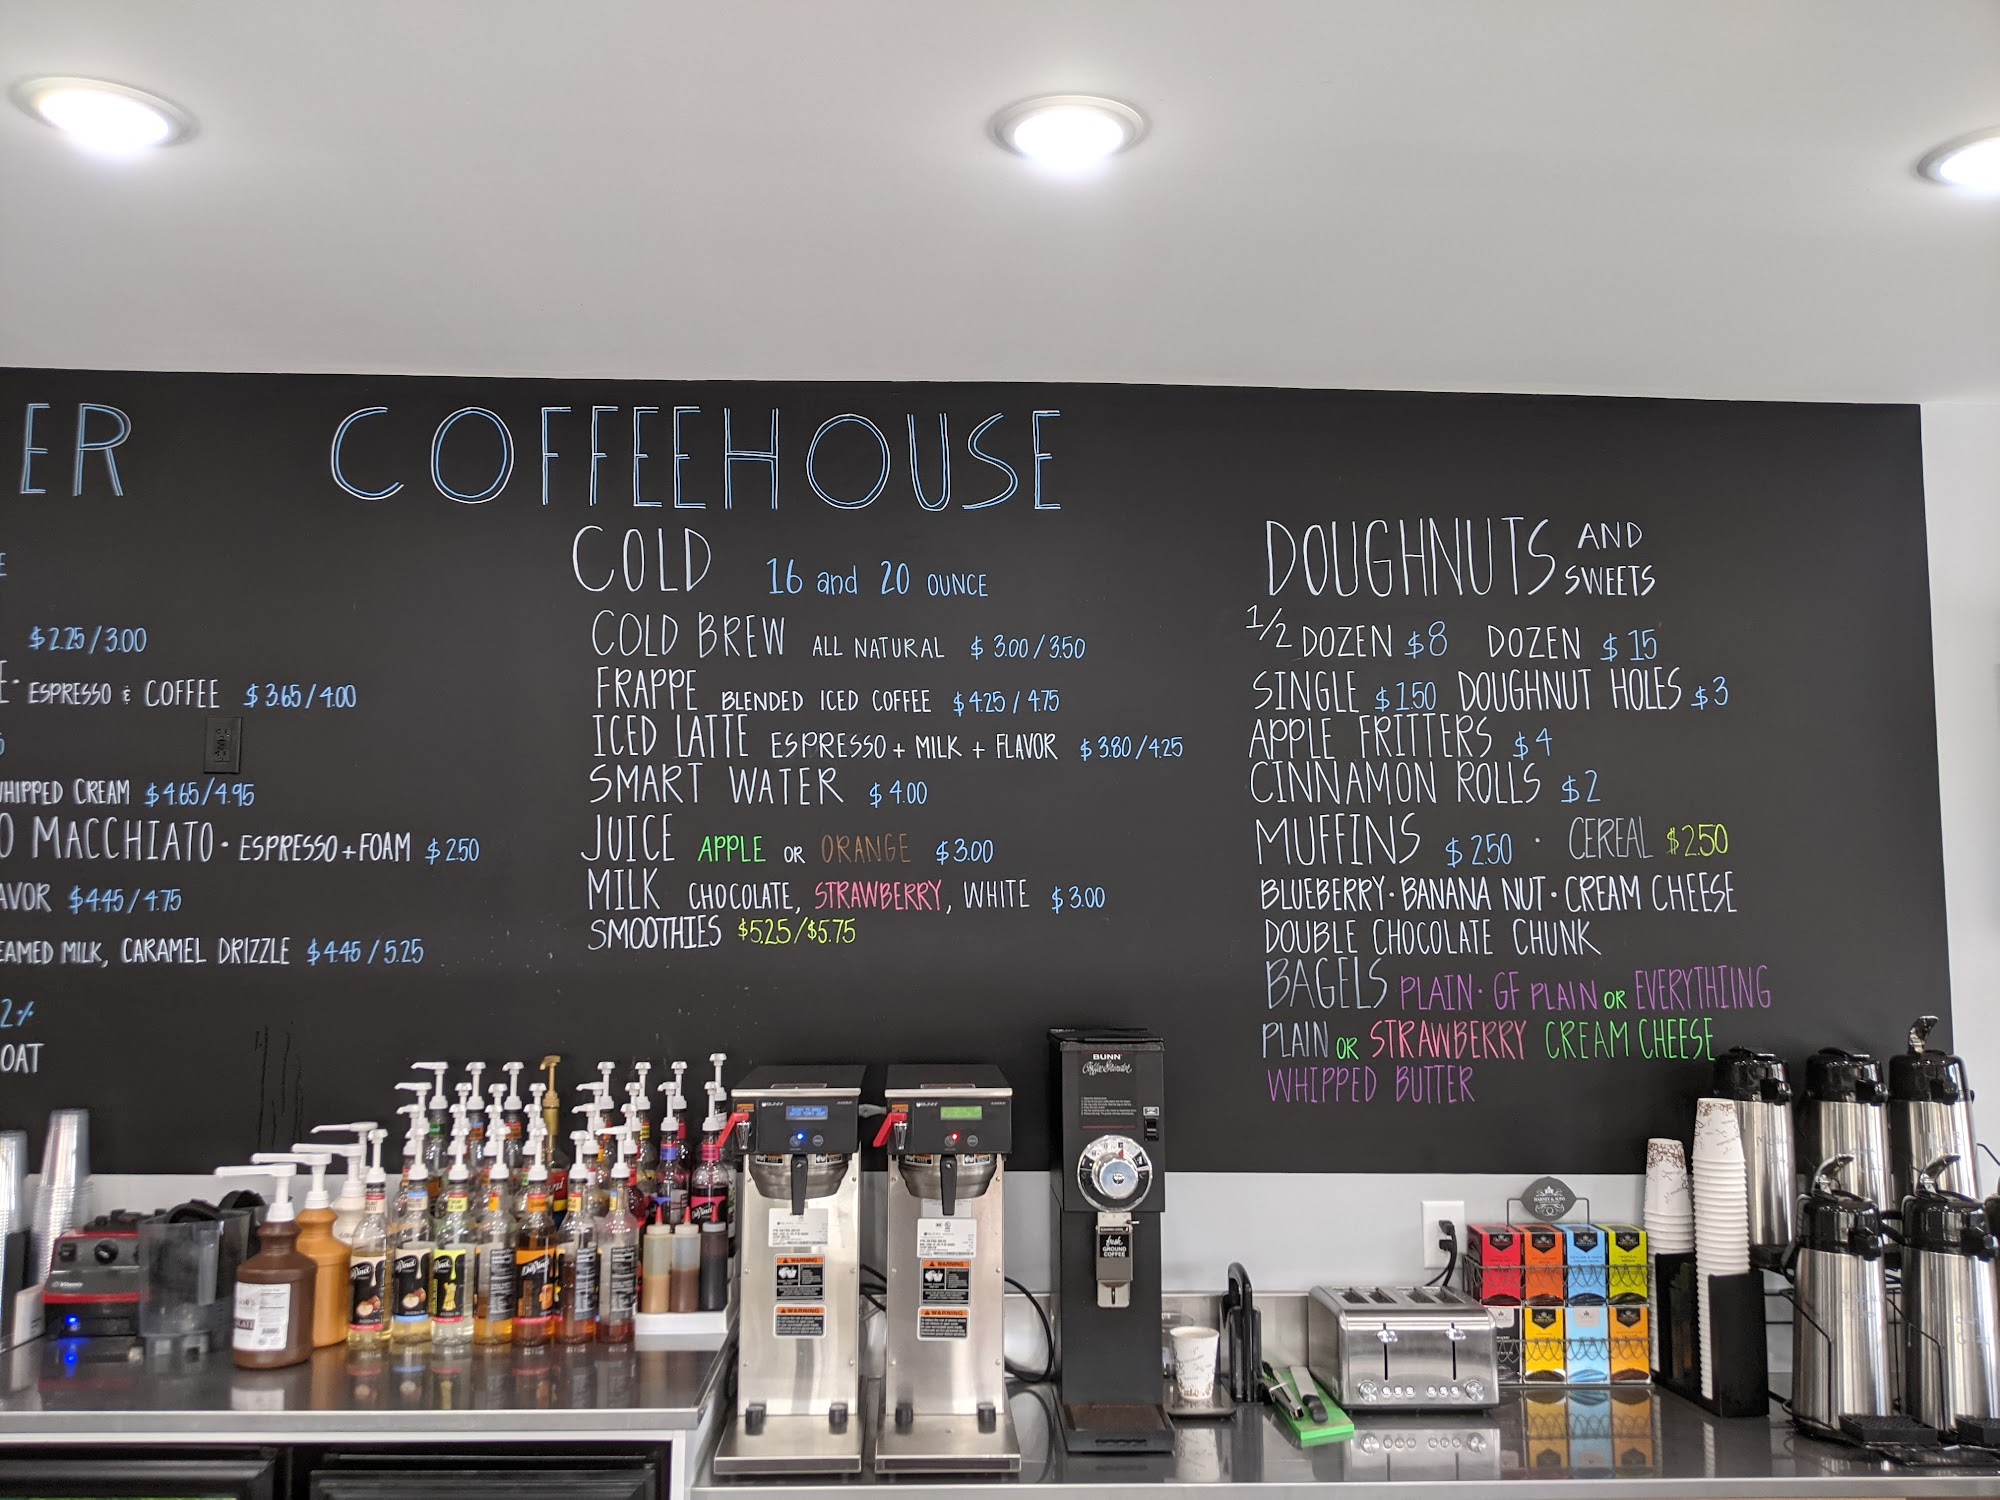 ER COFFEEHOUSE
$2.25/3.00
ESPRESSO & COFFEE $3.65/4.00
WHIPPED CREAM $4.65/4.95
O MACCHIATO · ESPRESSO + FOAM $2.50
AVOR $4.45/4.75
EAMED MILK, CARAMEL DRIZZLE $4.45/5.25
2%
OAT
COLD 16 and 20 OUNCE
COLD BREW ALL NATURAL $3.00/3.50
FRAPPE BLENDED ICED COFFEE $4.25/4.75
ICED LATTE ESPRESSO + MILK + FLAVOR $3.80/4.25
SMART WATER $4.00
JUICE APPLE OR ORANGE $3.00
MILK CHOCOLATE, STRAWBERRY, WHITE $3.00
SMOOTHIES $5.25/$5.75
DOUGHNUTS AND SWEETS
1/2 DOZEN $8 DOZEN $15
SINGLE $1.50 DOUGHNUT HOLES $3
APPLE FRITTERS $4
CINNAMON ROLLS $2
MUFFINS $2.50 · CEREAL $2.50
BLUEBERRY · BANANA NUT · CREAM CHEESE
DOUBLE CHOCOLATE CHUNK
BAGELS PLAIN · GF PLAIN OR EVERYTHIING
PLAIN OR STRAWBERRY CREAM CHEESE
WHIPPED BUTTER
BUNN
Coffee Grinder
fresh
GROUND
COFFEE
WARNING
WARNING
WARNING
WARNING
DaVinci
DaVinci
HARNEY & SONS